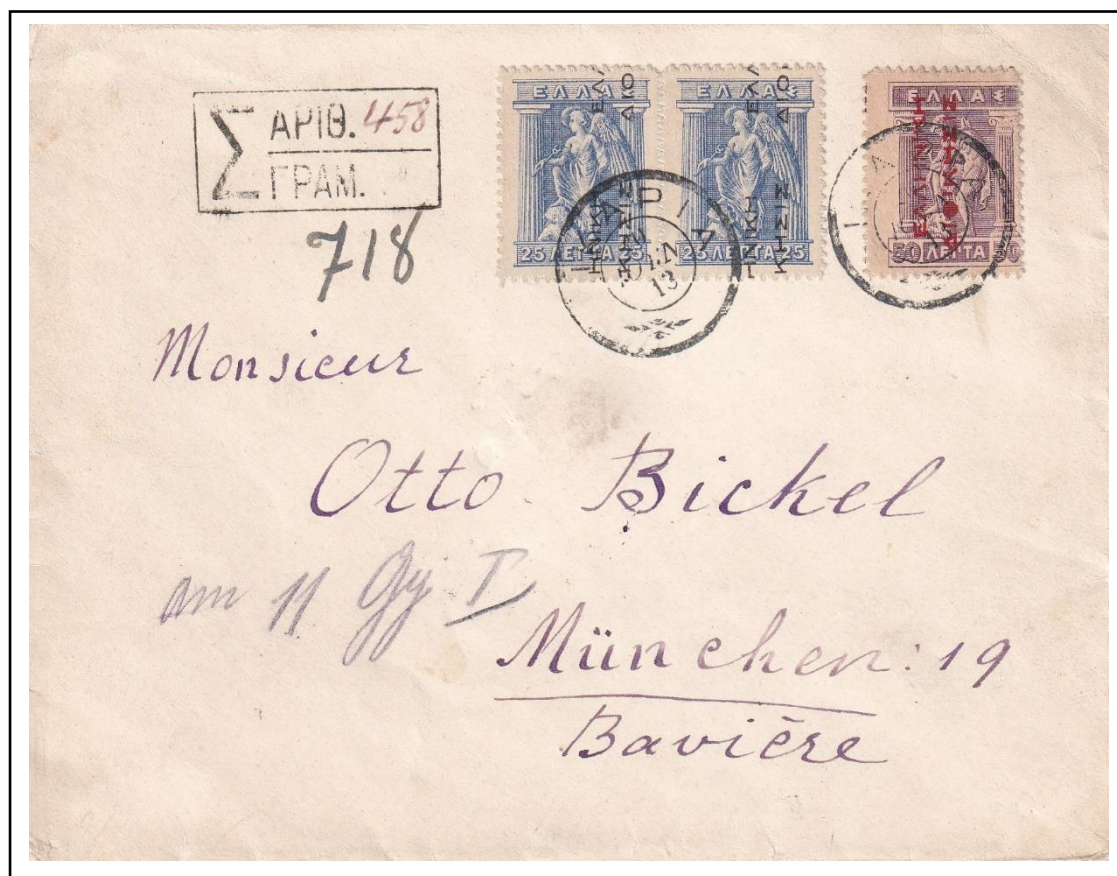 Σ ΑΡΙΘ. 458
ΓΡΑΜ.
718
ΕΛΛΑΣ ΕΛΛΑΣ ΕΛΛΑΣ
25 ΛΕΠΤΑ 25 25 ΛΕΠΤΑ 25 50 ΛΕΠΤΑ
13
Monsieur
Otto Bickel
am 11
München: 19
Bavière